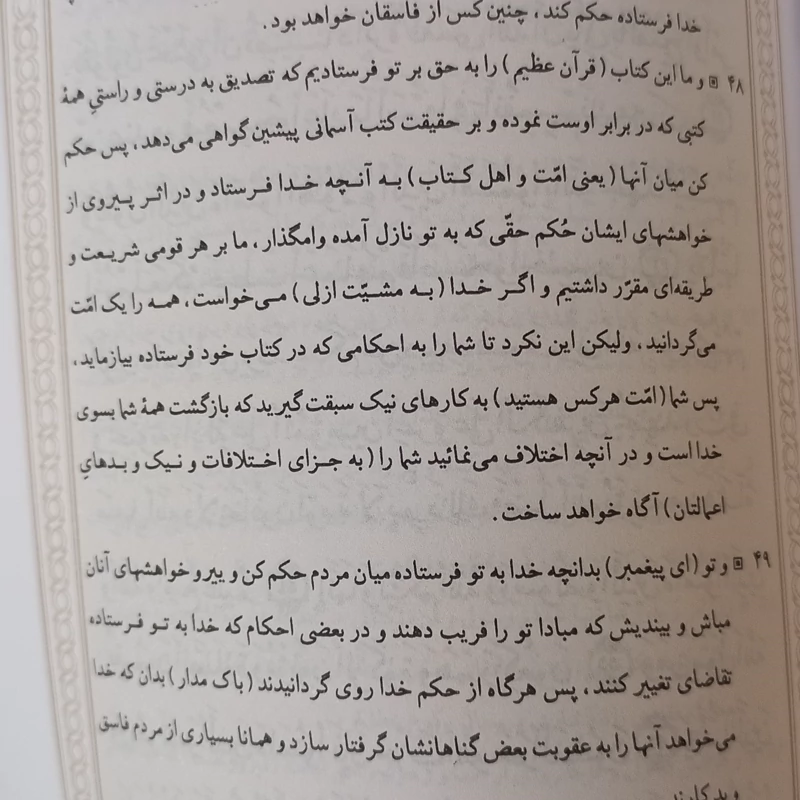 خدا فرستاده حکم کند، چنین کس از فاسقان خواهد بود.
۴۸ و ما این کتاب (قرآن عظیم) را به حق بر تو فرستادیم که تصدیق به درستی و راستیِ همهٔ
کتبی که در برابر اوست نموده و بر حقیقت کتب آسمانی پیشین گواهی می‌دهد، پس حکم
کن میان آنها (یعنی امّت و اهل کتاب) به آنچه خدا فرستاد و در اثر پیروی از
خواهشهای ایشان حُکم حقّی که به تو نازل آمده وامگذار، ما بر هر قومی شریعت و
طریقه‌ای مقرّر داشتیم و اگر خدا (به مشیّت ازلی) می‌خواست، همه را یک امّت
می‌گردانید، ولیکن این نکرد تا شما را به احکامی که در کتاب خود فرستاده بیازماید.
پس شما (امّت هرکس هستید) به کارهای نیک سبقت گیرید که بازگشت همهٔ شما بسوی
خدا است و در آنچه اختلاف می‌نمائید شما را (به جزای اختلافات و نیک و بدهایِ
اعمالتان) آگاه خواهد ساخت.
۴۹ و تو (ای پیغمبر) بدانچه خدا به تو فرستاده میان مردم حکم کن و پیرو خواهشهای آنان
مباش و بیندیش که مبادا تو را فریب دهند و در بعضی احکام که خدا به تو فرستاده
تقاضای تغییر کنند، پس هرگاه از حکم خدا روی گردانیدند (باک مدار) بدان که خدا
می‌خواهد آنها را به عقوبت بعض گناهانشان گرفتار سازد و همانا بسیاری از مردم فاسق
و بدکارند